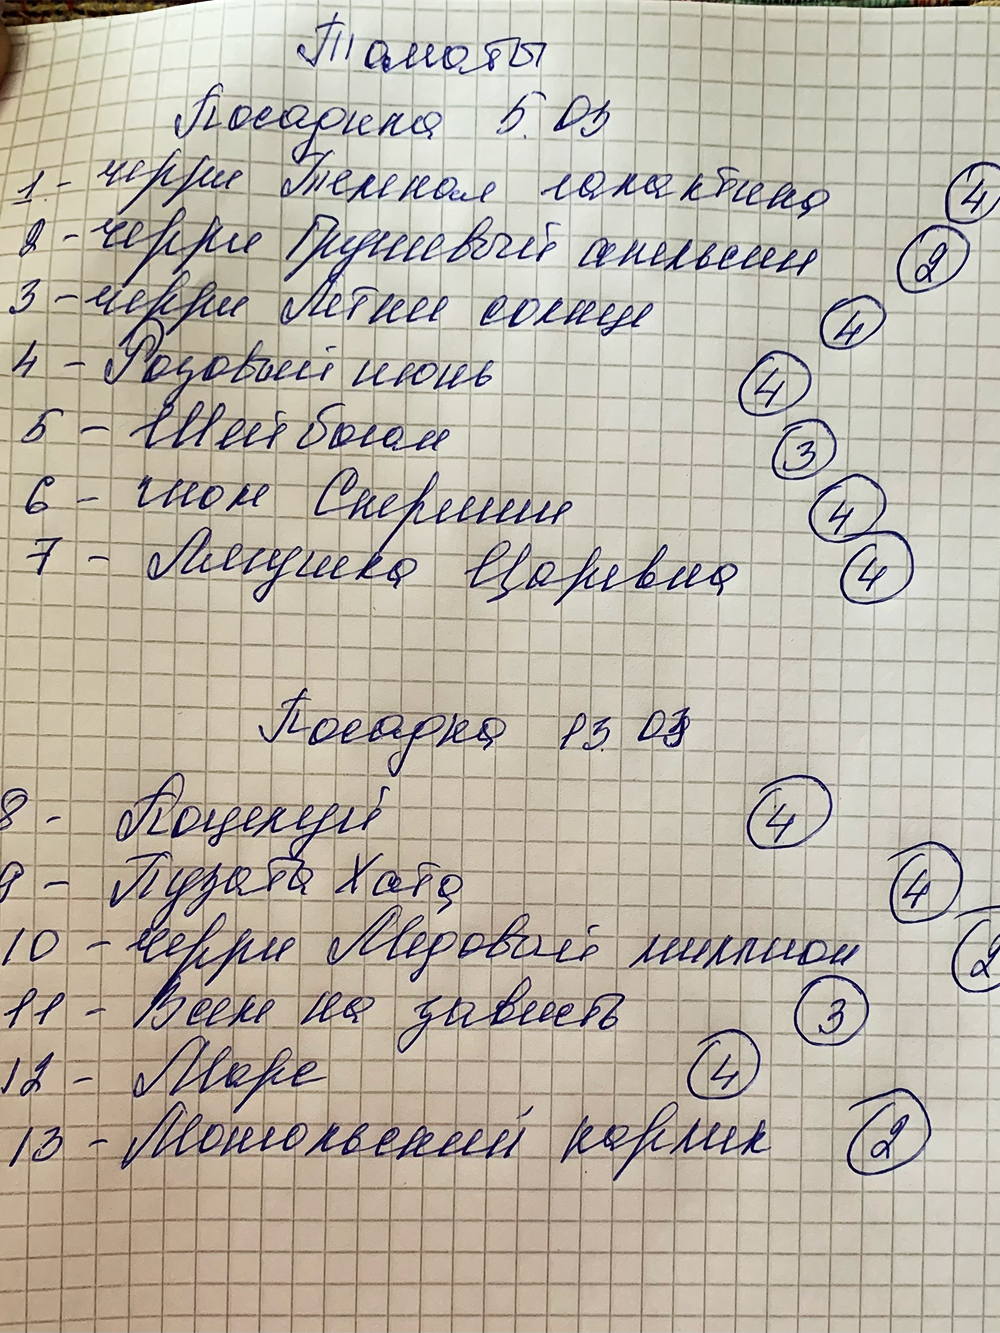 Таматы
Посадка 5.03
1 - черри Темная галактика 4
2 - черри Грушевый апельсин 2
3 - черри Летнее солнце 4
4 - Розовый июнь 4
5 - Шейбоган 3
6 - гном Сперишн 4
7 - Лягушка Царевна 4
Посадка 13.03
8 - Поцелуй 4
9 - Пузата Хата 4
10 - черри Медовый миллион 2
11 - Всем на зависть 3
12 - Марс 4
13 - Монгольский карлик 2